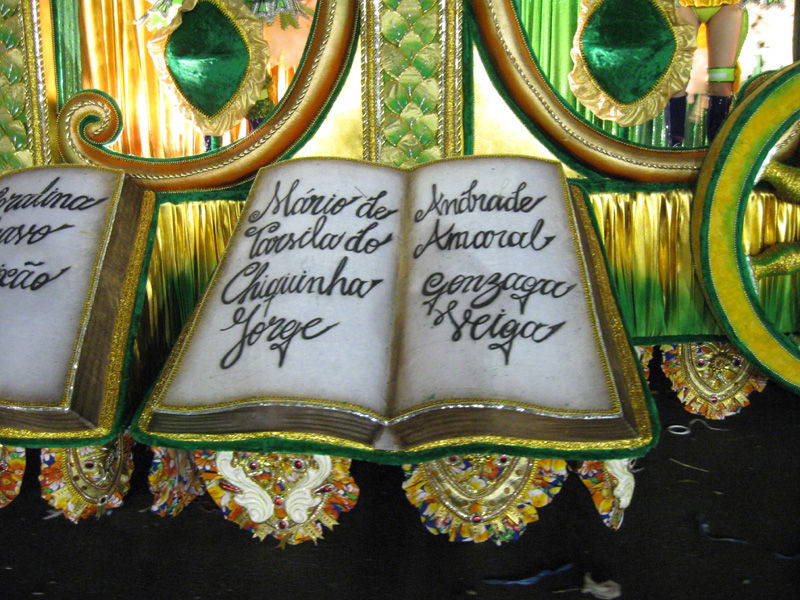 Mário de Andrade
Tarsila do Amaral
Chiquinha Gonzaga
Jorge Veiga